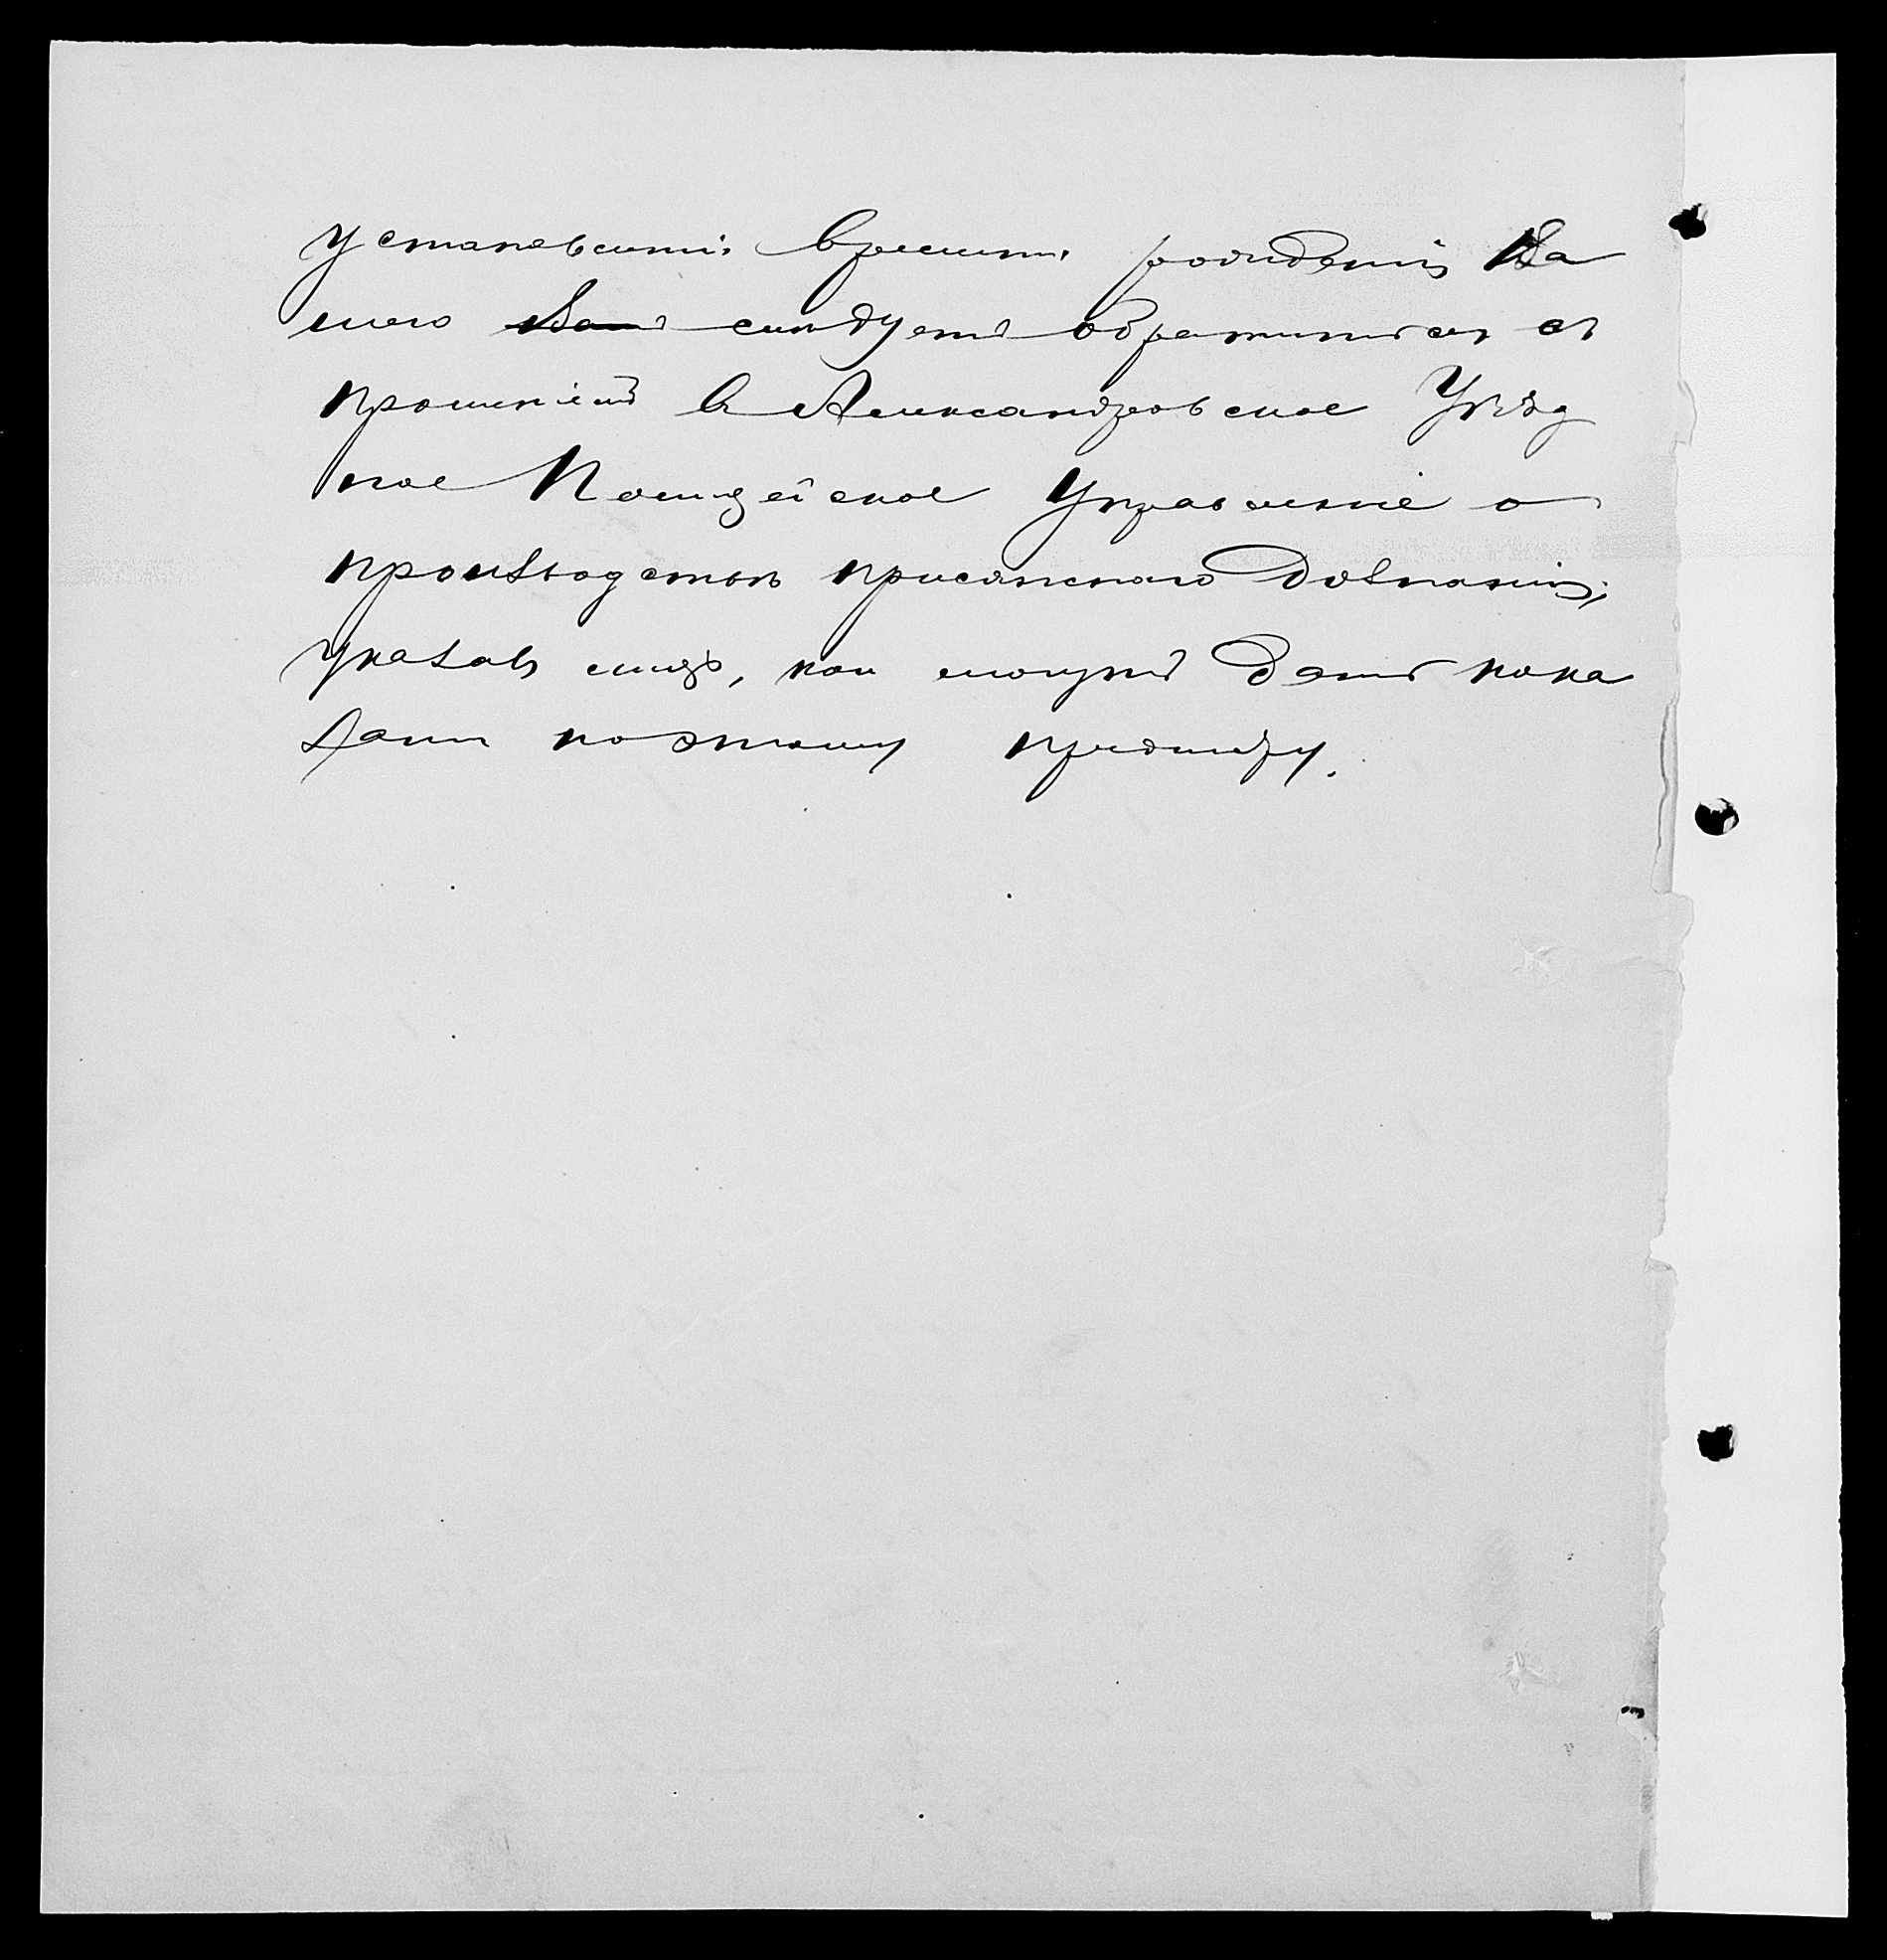 установленія времени рожденія Ва
шего ~~Вамъ~~ слѣдуетъ обратиться съ
прошеніемъ въ Александровское Уѣзд
ное Полицейское Управленіе о
производствѣ присяжнаго дознанія,
указавъ лицъ, кои могутъ дать пока
занія по этому предмету.